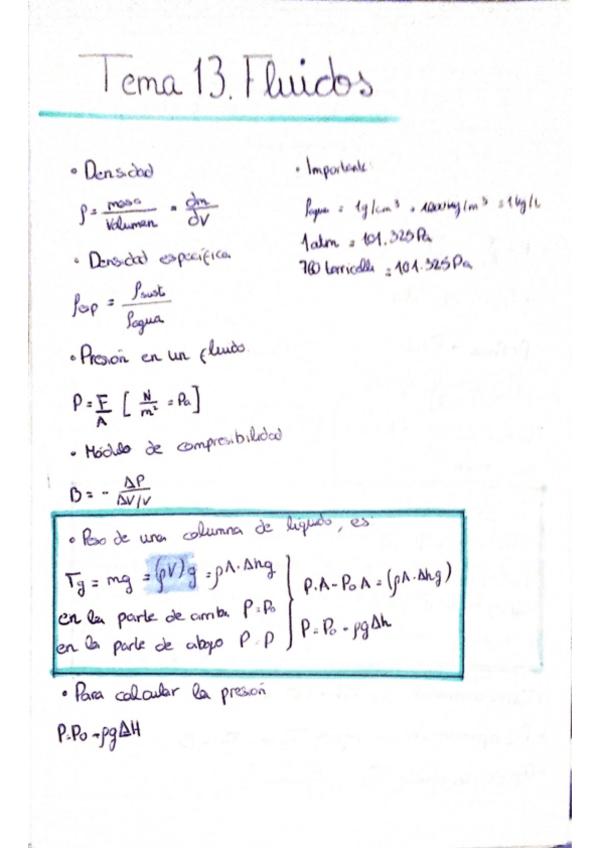 Tema 13. Fluidos
• Densidad
ρ = masa/Volumen = dm/dV
• Densidad específica
ρesp = ρsust/ρagua
• Presión en un fluido.
P = F/A [N/m² = Pa]
• Módulo de compresibilidad
B = - ΔP/ΔV/V
• Importante:
ρagua = 1g/cm³ = 1000kg/m³ = 1kg/L
1atm = 101.325Pa
760 torricellis = 101.325Pa
• Peso de una columna de líquido, es:
= mg = (ρV)g = ρA·Δhg
en la parte de arriba P=P₀
en la parte de abajo P=P
P·A-P₀A=(ρA·Δhg)
P=P₀-ρgΔh
• Para calcular la presión
P=P₀-ρgΔH